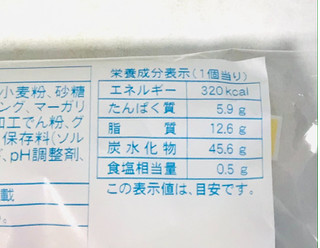 小麦粉、砂糖
ング、マーガリ
加工でん粉、グ
保存料(ソル
、pH調整剤、
載
栄養成分表示(1個当り)
エネルギー 320kcal
たんぱく質 5.9g
脂質 12.6g
炭水化物 45.6g
食塩相当量 0.5g
この表示値は、目安です。